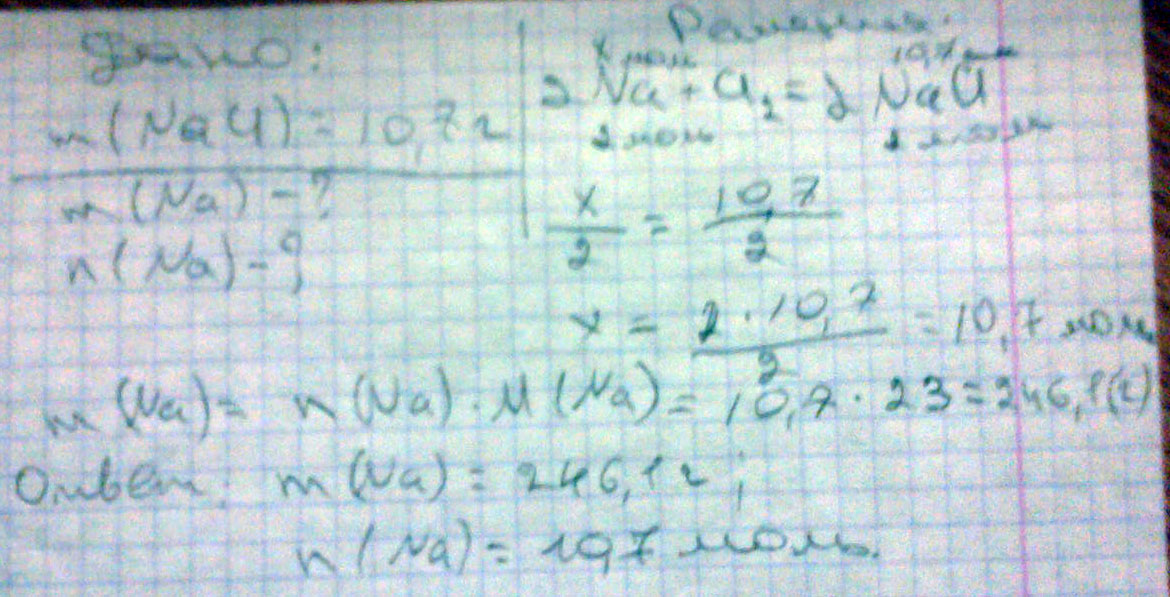 Дано:
m(NaCl) = 10,7 г
m(Na) - ?
n(Na) - ?
Решение:
x моль 10,7 моль
2Na + Cl₂ = 2NaCl
2 моль 2 моль
x/2 = 10,7/2
x = 2·10,7/2 = 10,7 моль
m(Na) = n(Na)·M(Na) = 10,7·23 = 246,1(г)
Ответ: m(Na) = 246,1 г;
n(Na) = 10,7 моль.